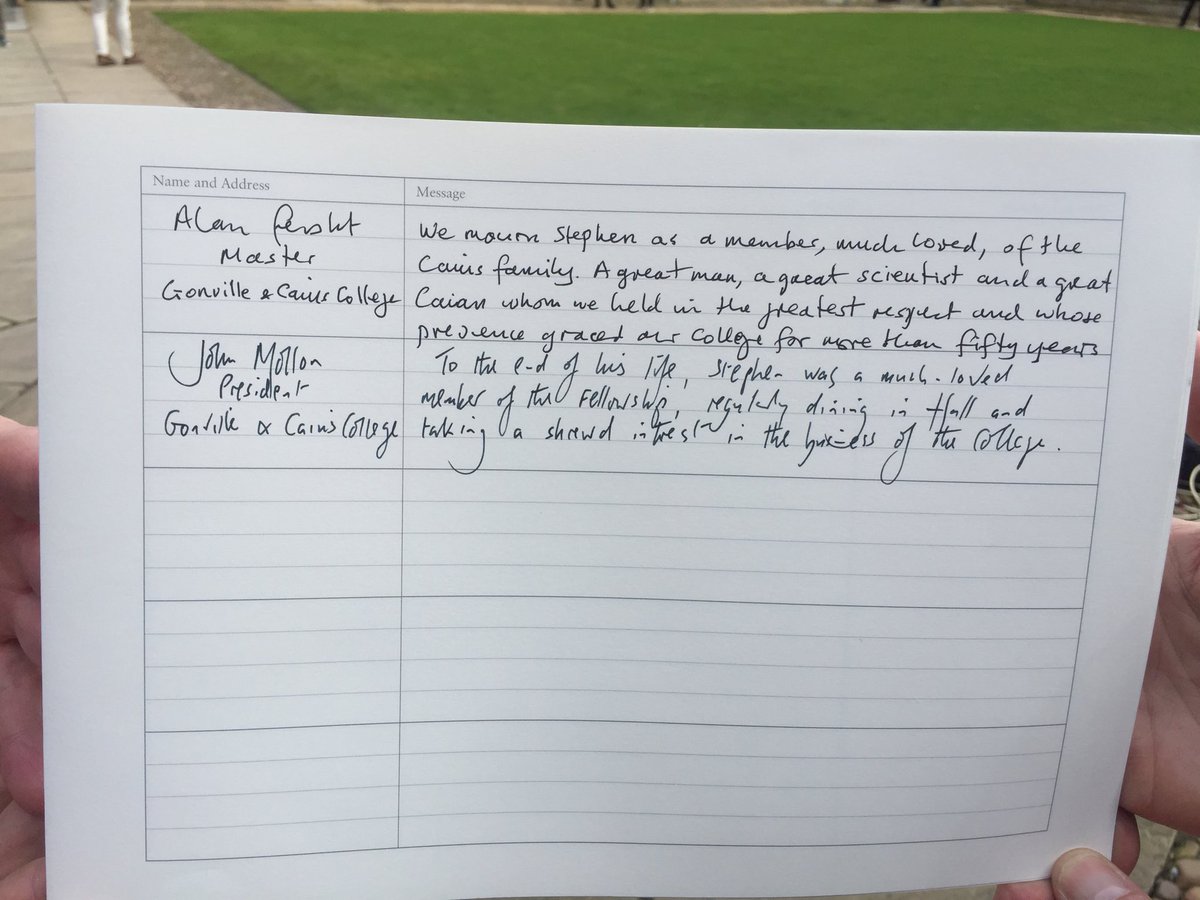 Name and Address
Message
Alan Fersht
Master
Gonville & Caius College
We mourn Stephen as a member, much loved, of the
Caius family. A great man, a great scientist and a great
Caian whom we held in the greatest respect and whose
presence graced our College for more than fifty years
John Mollon
President
Gonville & Caius College
To the end of his life, Stephen was a much-loved
member of the Fellowship, regularly dining in Hall and
taking a shrewd interest in the business of the College.